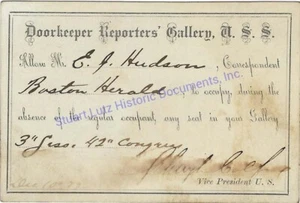 Doorkeeper Reporters' Gallery, U. S. S.
Allow Mr. E. J. Hudson, Correspondent
Boston Herald, to occupy, during the
absence of the regular occupant, any seat in your Gallery
3d Sess. 42d Congress
Vice President U. S.
Stuart Lutz Historic Documents, Inc.